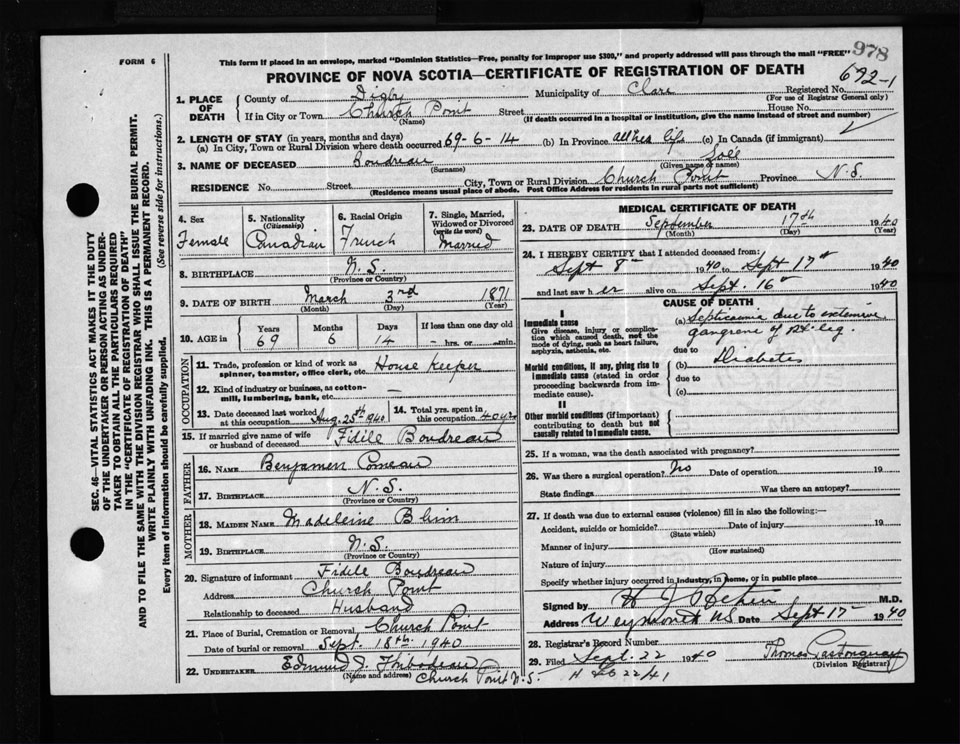 978
FORM 6
This form if placed in an envelope, marked "Dominion Statistics—Free, penalty for improper use $300," and properly addressed will pass through the mail "FREE"
PROVINCE OF NOVA SCOTIA—CERTIFICATE OF REGISTRATION OF DEATH
692-1
SEC. 46—VITAL STATISTICS ACT MAKES IT THE DUTY
OF THE UNDERTAKER OR PERSON ACTING AS UNDER-
TAKER TO OBTAIN ALL THE PARTICULARS REQUIRED
IN THE "CERTIFICATE OF REGISTRATION OF DEATH"
AND TO FILE THE SAME WITH THE DIVISION REGISTRAR WHO SHALL ISSUE THE BURIAL PERMIT.
WRITE PLAINLY WITH UNFADING INK. THIS IS A PERMANENT RECORD.
Every item of information should be carefully supplied. (See reverse side for instructions.)
1. PLACE OF DEATH
County of Digby Municipality of Clare Registered No.
(For use of Registrar General only)
If in City or Town Church Point Street House No.
(Name) (If death occurred in a hospital or institution, give the name instead of street and number)
2. LENGTH OF STAY (in years, months and days)
(a) In City, Town or Rural Division where death occurred 69-6-14 (b) In Province all her life (c) In Canada (if immigrant)
3. NAME OF DECEASED Boudreau
(Surname) (Given name or names)
RESIDENCE No. Street City, Town or Rural Division Church Point Province N.S.
(Residence means usual place of abode. Post Office Address for residents in rural parts not sufficient)
4. Sex 5. Nationality (Citizenship) 6. Racial Origin 7. Single, Married, Widowed or Divorced (write the word)
Female Canadian French Married
8. BIRTHPLACE N.S.
(Province or Country)
9. DATE OF BIRTH March 3rd 1871
(Month) (Day) (Year)
10. AGE in Years Months Days If less than one day old
69 6 14 hrs. or min.
OCCUPATION
11. Trade, profession or kind of work as spinner, teamster, office clerk, etc. House Keeper
12. Kind of industry or business, as cotton-mill, lumbering, bank, etc.
13. Date deceased last worked at this occupation Aug. 25th 1940 14. Total yrs. spent in this occupation 40 yrs
15. If married give name of wife or husband of deceased Fidile Boudreau
FATHER
16. NAME Benjamen Comeau
17. BIRTHPLACE N.S.
(Province or Country)
MOTHER
18. MAIDEN NAME Madeleine
19. BIRTHPLACE N.S.
(Province or Country)
20. Signature of informant Fidile Boudreau
Address Church Point
Relationship to deceased Husband
21. Place of Burial, Cremation or Removal Church Point
Date of burial or removal Sept. 18th. 1940
22. UNDERTAKER Edmund J. Thibodeau
(Name and address) Church Point N.S.
MEDICAL CERTIFICATE OF DEATH
23. DATE OF DEATH September 17th 1940
(Month) (Day) (Year)
24. I HEREBY CERTIFY that I attended deceased from:
Sept 8th 1940 to Sept 17th 1940
and last saw her alive on Sept. 16th 1940
CAUSE OF DEATH
I
Immediate cause
Give disease, injury or complication which caused death, not the mode of dying, such as heart failure, asphyxia, asthenia, etc.
(a) Septicaemia due to extensive
gangrene of rt. leg.
due to
Morbid conditions, if any, giving rise to immediate cause (stated in order proceeding backwards from immediate cause).
(b) Diabetes
due to
(c)
II
Other morbid conditions (if important) contributing to death but not causally related to immediate cause.
25. If a woman, was the death associated with pregnancy?
26. Was there a surgical operation? No Date of operation 19
State findings Was there an autopsy?
27. If death was due to external causes (violence) fill in also the following:—
Accident, suicide or homicide? Date of injury 19
(State which)
Manner of injury
(How sustained)
Nature of injury
Specify whether injury occurred in industry, in home, or in public place
Signed by M.D.
Address Weymouth NS Date Sept 17 1940
28. Registrar's Record Number
29. Filed Sept. 22 1940 Thomas
(Division Registrar)